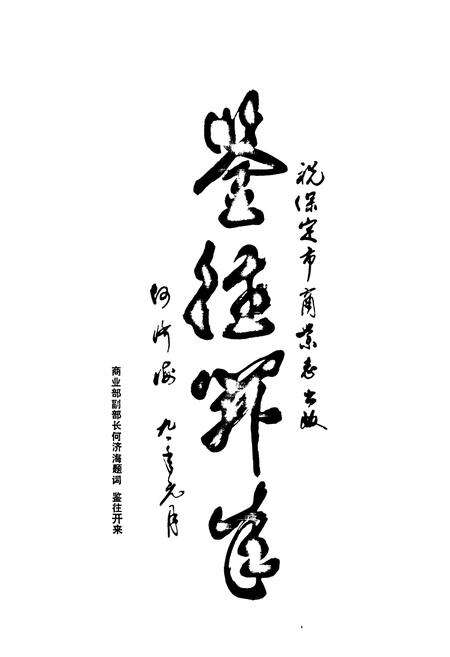 祝保定市商業志出版
鉴往開来
何济海
九一年元月
商业部副部长何济海题词 鉴往开来